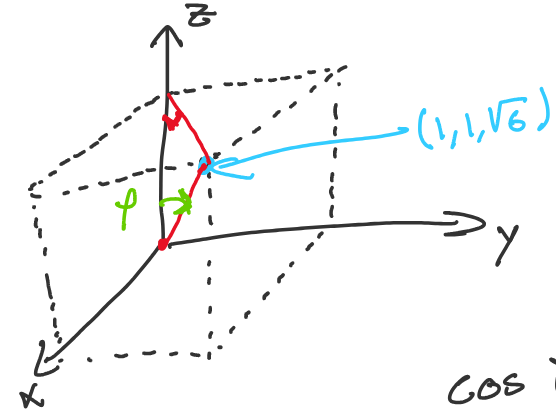 z
(1, 1, √6)
φ
y
x
cos